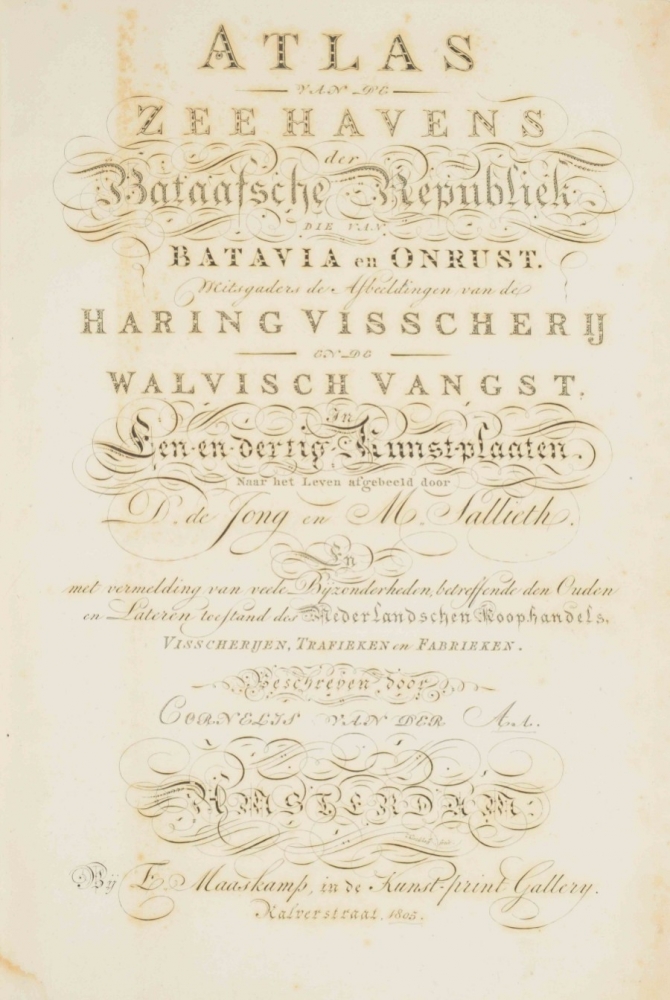 ATLAS
VAN DE
ZEEHAVENS
der
Bataafsche Republiek
DIE VAN
BATAVIA en ONRUST.
Mitsgaders de Afbeeldingen van de
HARINGVISSCHERIJ
EN DE
WALVISCH VANGST.
In
Een-en-dertig Kunst-plaaten.
Naar het Leven afgebeeld door
D. de Jong en M. Sallieth.
En
met vermelding van veele Byzonderheden, betreffende den Ouden
en Lateren toestand des Nederlandschen Koophandels,
VISSCHERIJEN, TRAFIEKEN en FABRIEKEN.
Beschreven door
CORNELIS VAN DER AA.
AMSTERDAM:
Bij E. Maaskamp, in de Kunst-print Gallery.
Kalverstraat. 1805.